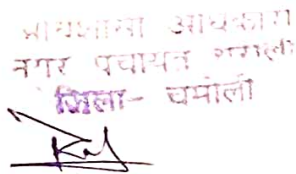 अधिशासी अधिकारी
नगर पंचायत थराली
जिला- चमोली